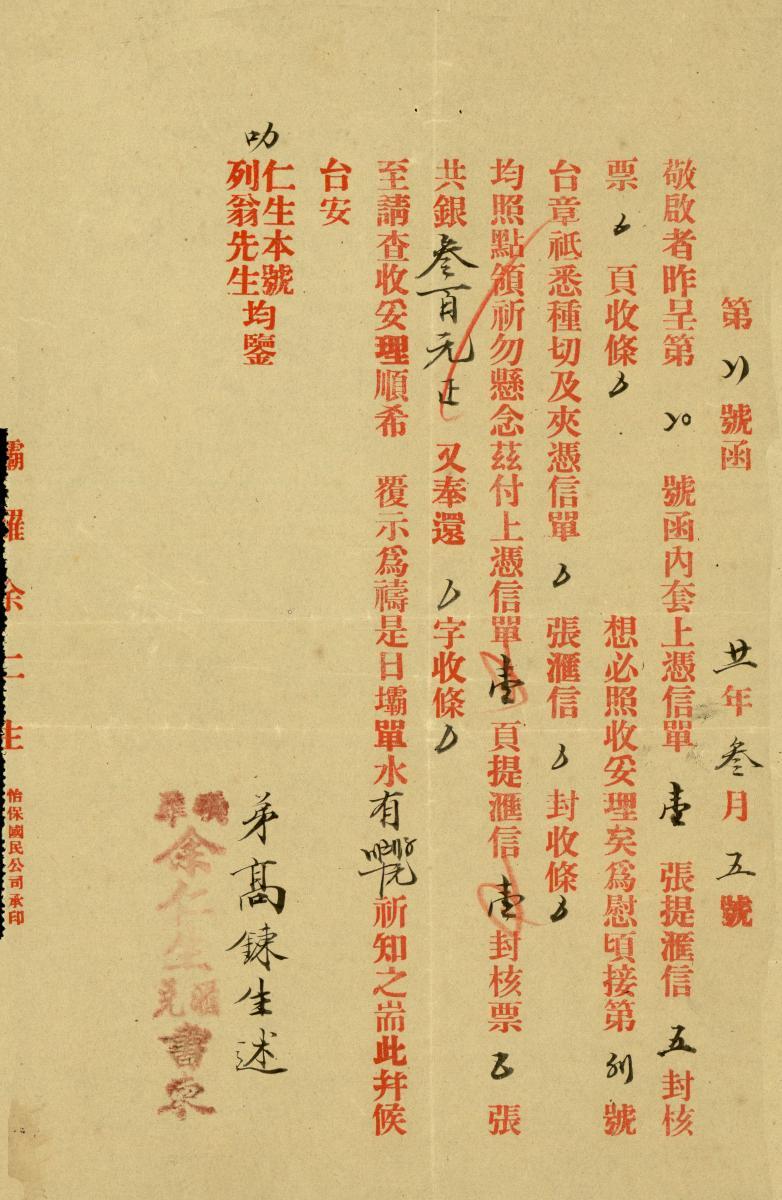 第〢〡號函 廿年叁月五號
敬啟者昨呈第〢〇號函內套上憑信單壹張提滙信五封核
票 頁收條 想必照收妥理矣爲慰頃接第 號
台章祇悉種切及夾憑信單 張滙信 封收條
均照點領祈勿懸念茲付上憑信單壹頁提滙信壹封核票 張
共銀叁百元正 又奉還 字收條
至請查收妥理順希 覆示爲禱是日壩單水有 祈知之耑此幷候
台安
叻仁生本號
列翁先生均鑒
弟高鍊生述
余仁生
滙兌
書柬
霸羅余仁生 怡保國民公司承印